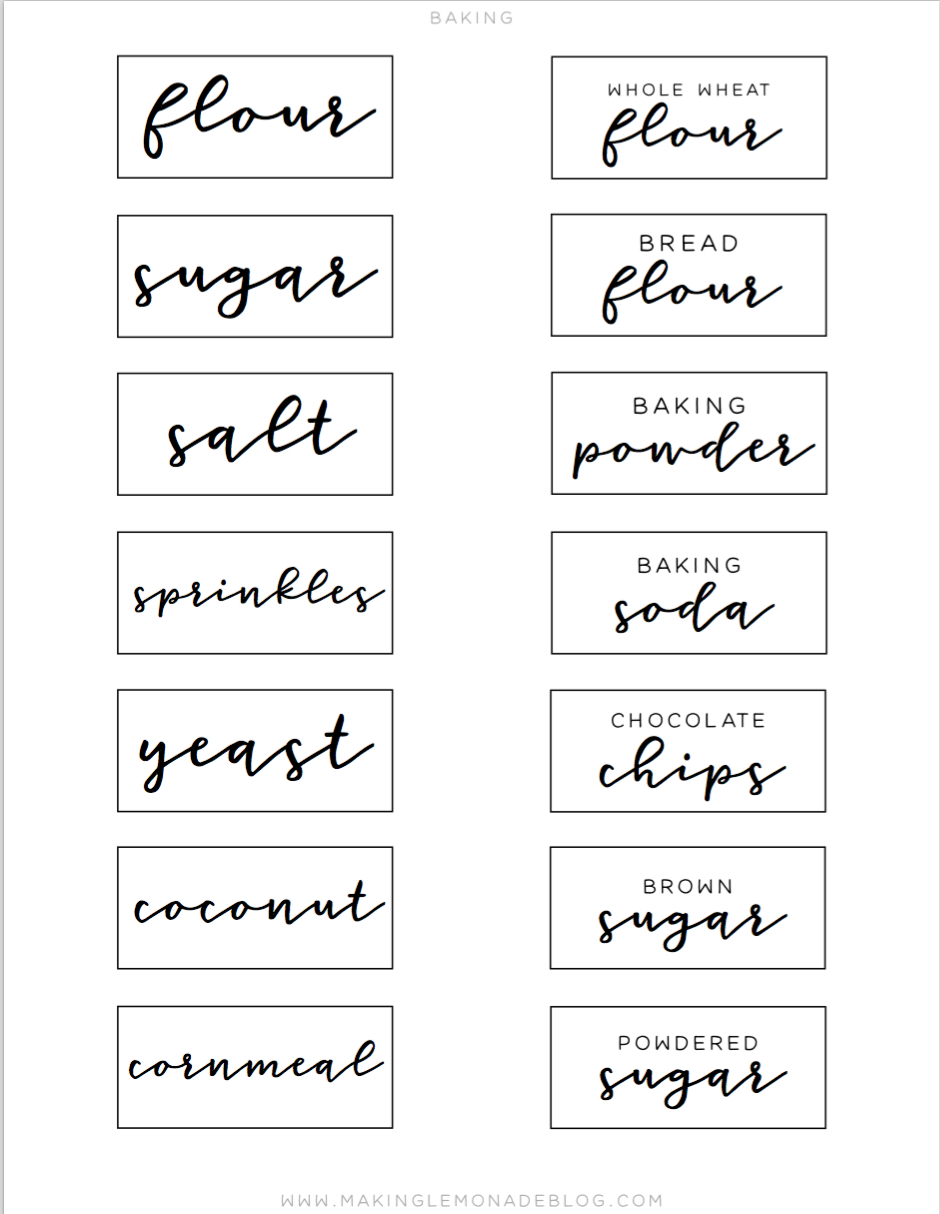 BAKING
flour
WHOLE WHEAT
flour
sugar
BREAD
flour
salt
BAKING
powder
sprinkles
BAKING
soda
yeast
CHOCOLATE
chips
coconut
BROWN
sugar
cornmeal
POWDERED
sugar
WWW.MAKINGLEMONADEBLOG.COM